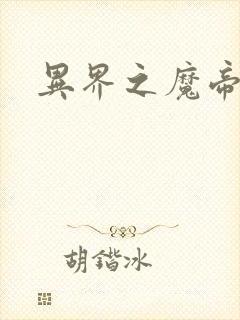 異界之魔帝
胡鍇冰